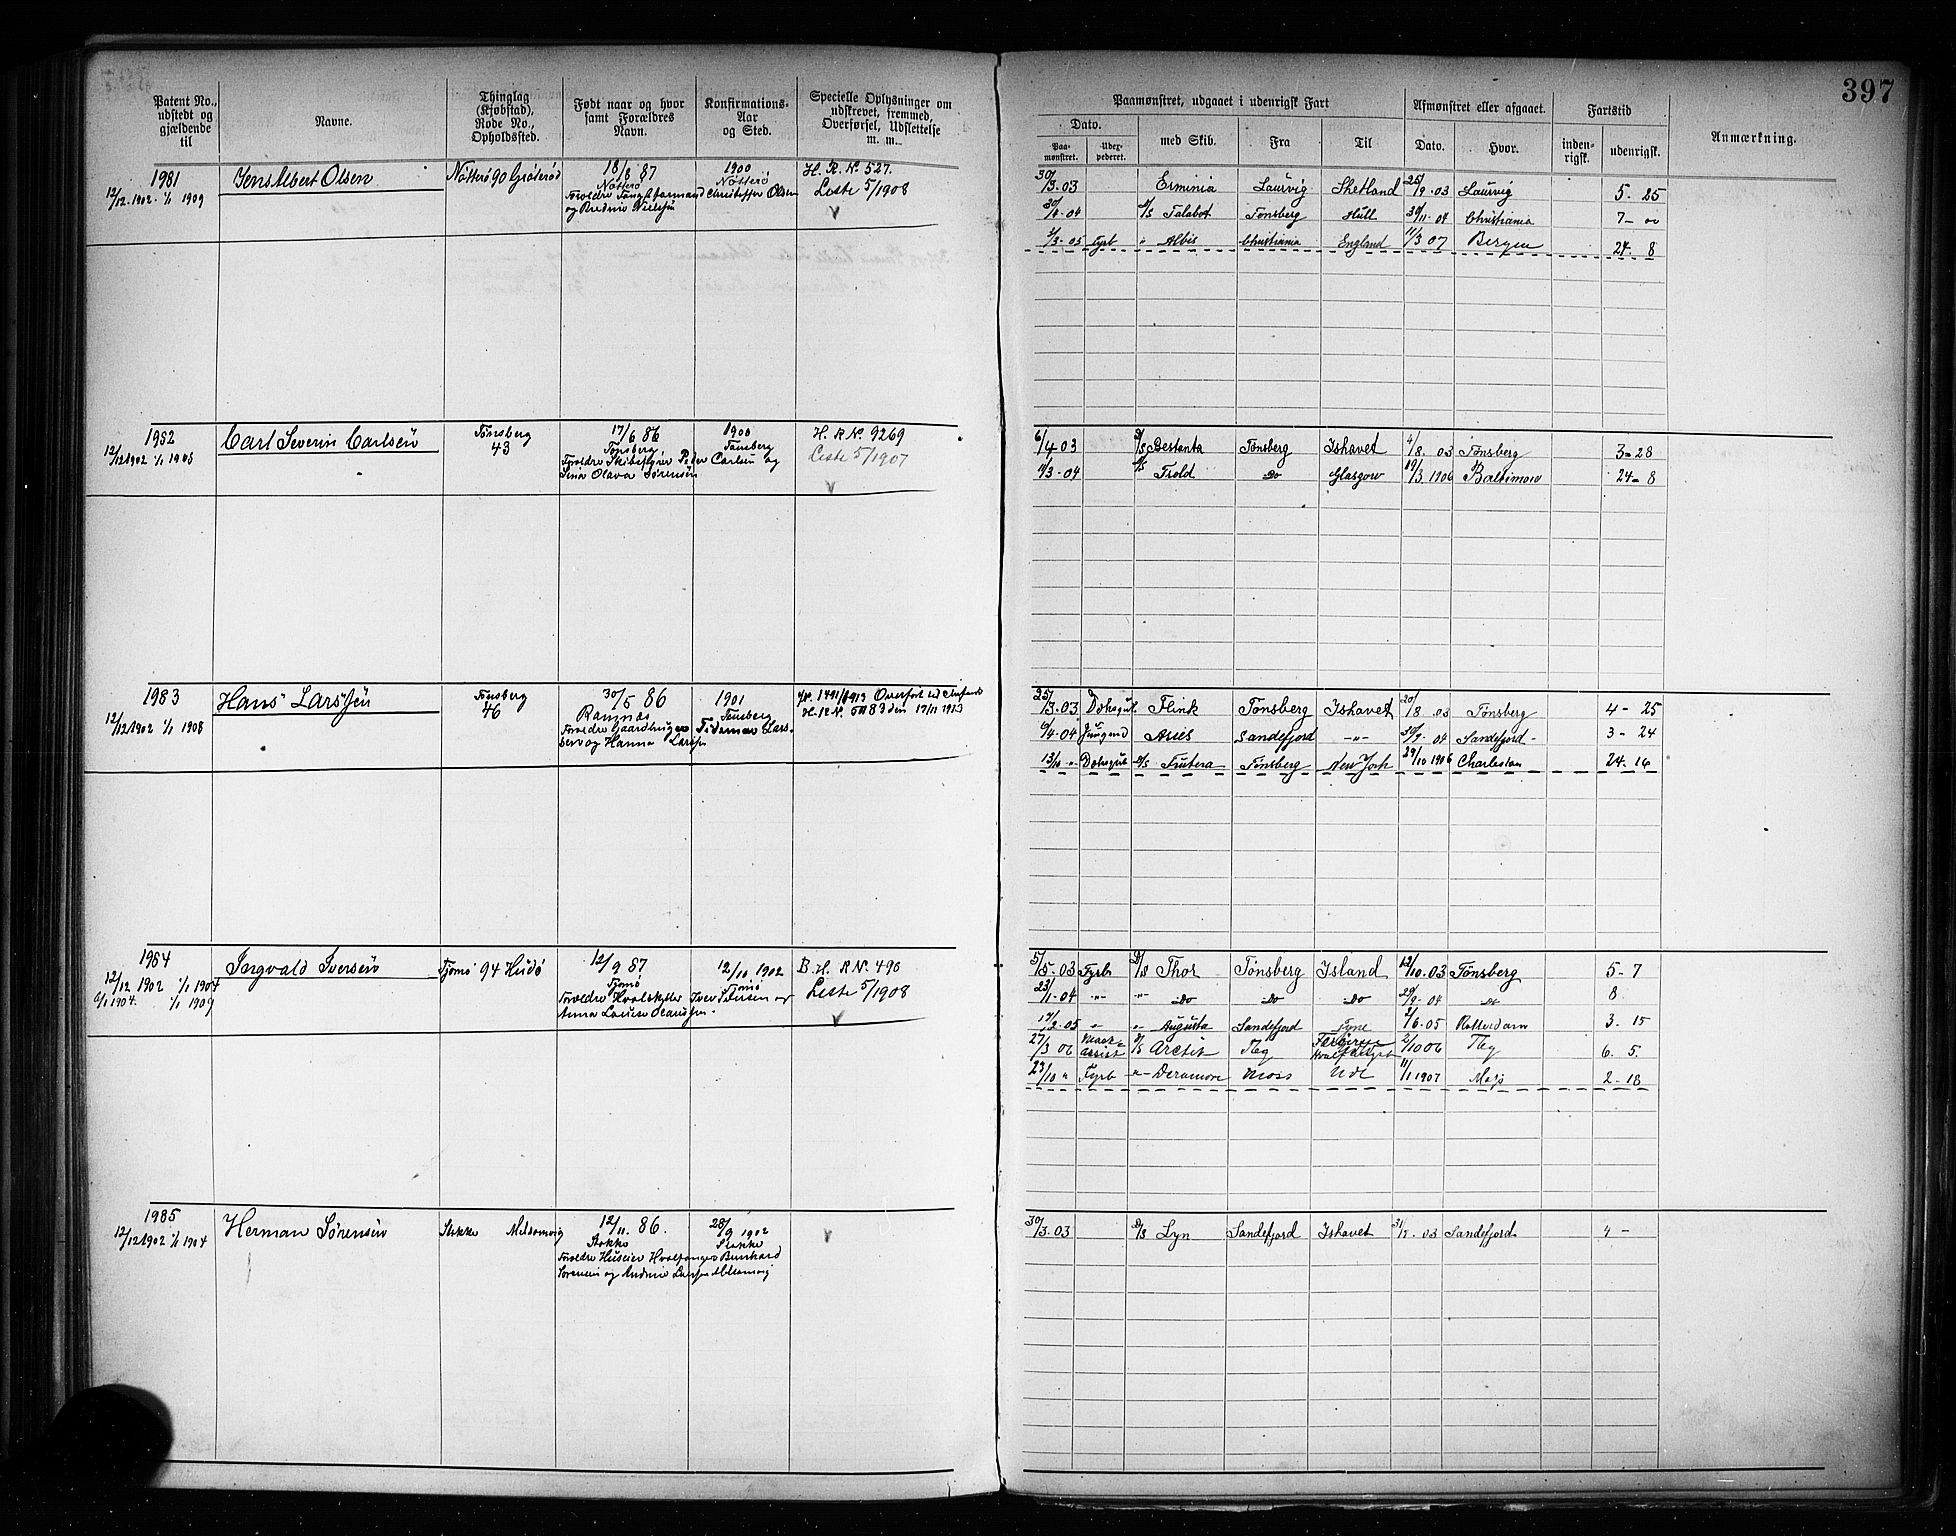 397
Patent No., udstedt og gjældende til
Navne.
Thinglag (Kjøbstad), Rode No., Opholdssted.
Født naar og hvor samt Forældres Navn.
Konfirmations-Aar og Sted.
Specielle Oplysninger om udskrevet, fremmed, Overførsel, Udslettelse m. m.
Paamønstret, udgaaet i udenrigsk Fart
Dato.
Paa-mønstret.
Udex-pederet.
med Skib.
Fra
Til
Afmønstret eller afgaaet.
Dato.
Hvor.
Fartstid
inden-rigsk.
udenrigsk.
Anmærkning.
1981
12/12 1902 1/1 1909
Jens Albert Olsen
Nøtterø 90
18/8 87
Nøtterø
1900
Nøtterø
Christoffer Olsen
H. R. No. 527.
Leste 5/1908
30/3.03 Erminia Laurvig Shetland 25/9.03 Laurvig 5 - 25
30/4.04 D/S Talabot Tønsberg Hull 30/11.04 Christiania 7 - 00
2/3.05 Fyrb " Albis Christiania England 11/3 07 Bergen 24 - 8
1982
12/12 1902 1/1 1908
Carl Severin Carlsen
Tønsberg
43
17/6 86
Tønsberg
1900
Tønsberg
Forældre Skibsfører Peder Carlsen og
Sina Olava Sørensen
H. R No. 9269
Leste 5/1907
6/4 03 D/S Bestanta Tønsberg Ishavet 4/8. 03 Tønsberg 3 - 28
11/3.04 D/S Trold Do Glasgow 19/3.1906 Baltimore 24 - 8
1983
12/12 1902 1/1 1908
Hans Larssen
Tønsberg
46
30/5 86
Ramnæs
1901
Tønsberg
25/3.03 Flink Tønsberg Ishavet 20/8.03 Tønsberg 4 - 25
6/4.04 Aries Sandefjord -"- 30/7.04 Sandefjord 3 - 24
13/10 " D/S Tønsberg New York 29/10 1906 Charleston 24 - 16
1984
12/12 1902 1/1 1904
6/1 1904. 1/1 1909
Ingvald Iversen
Tjømø 94 Hudø
12/9 87
Tjømø
12/10 1902
Tjømø
Anna Louise Olausen
B. H. R No. 496
Leste 5/1908
5/5.03 Fyrb D/S Thor Tønsberg Island 12/10.03 Tønsberg 5 - 7
23/1.04 -"- -"- Do Do Do 29/9.04 Do 8
17/2.05 " " Augusta Sandefjord Tyne 2/6.05 Rotterdam 3. 15
27/3 06 D/S Arctik Tbg 2/10 06 Tbg 6. 5.
23/10 " Fyrb -"- Deramore Moss 11/1 1907 2 - 18
1985
12/12 1902 1/1 1904
Herman Sørensen
Stokke
12/11. 86.
Stokke
28/9 1902
Stokke
30/3.03 D/S Lyn Sandefjord Ishavet 31/7. 03 Sandefjord 4 -